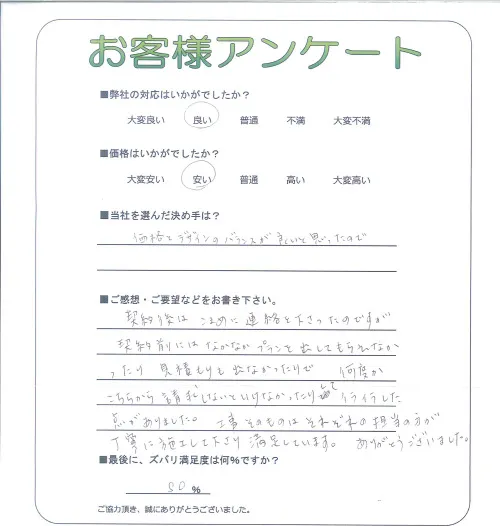 お客様アンケート
■弊社の対応はいかがでしたか？
大変良い 良い 普通 不満 大変不満
■価格はいかがでしたか？
大変安い 安い 普通 高い 大変高い
■当社を選んだ決め手は？
価格とデザインのバランスが良いと思ったので
■ご感想・ご要望などをお書き下さい。
契約後は こまめに 連絡を下さったのですが
契約前には なかなか プランを出してもらえなか
ったり 見積もりも出なかったりで 何度か
こちらから 請求しないといけなかったりして イライラした
点がありました。 工事そのものは それぞれの担当の方が
丁寧に施工して下さり 満足しています。 ありがとうございました。
■最後に、ズバリ満足度は何%ですか？
80 %
ご協力頂き、誠にありがとうございました。